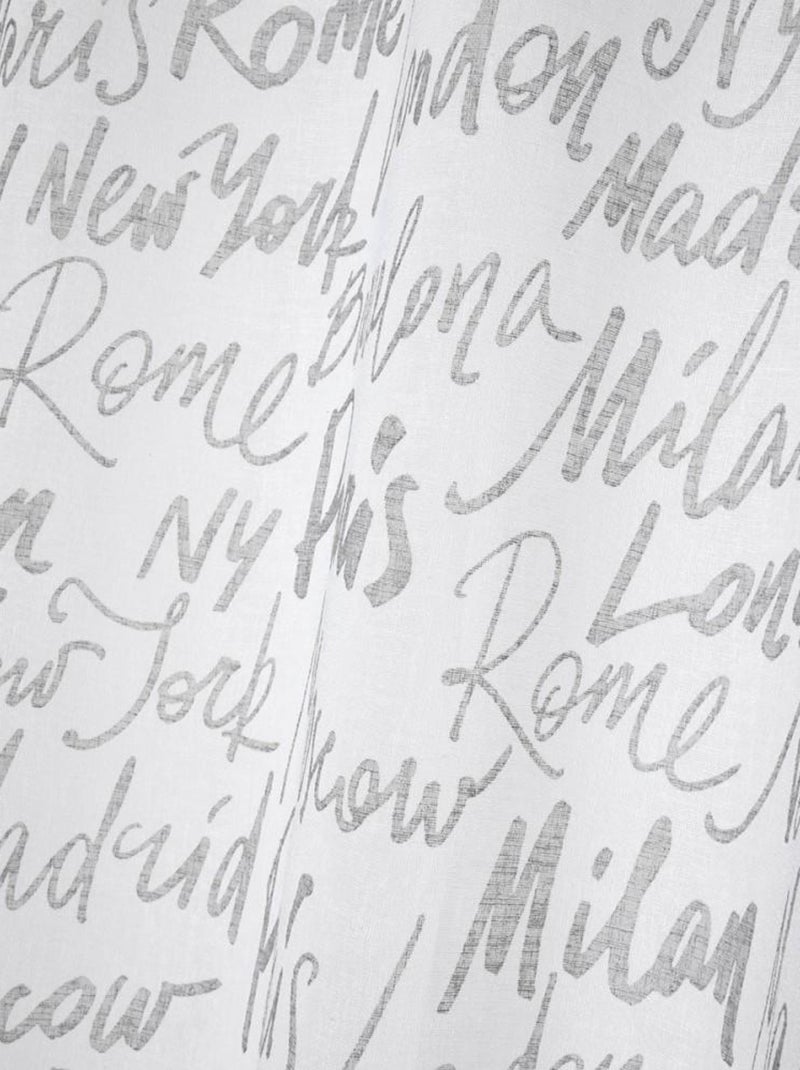 aris Rome ndon Ny
New York Mad
Rome lona Milan
NY is Lon
York Rome
adrid cow Milan
cow is